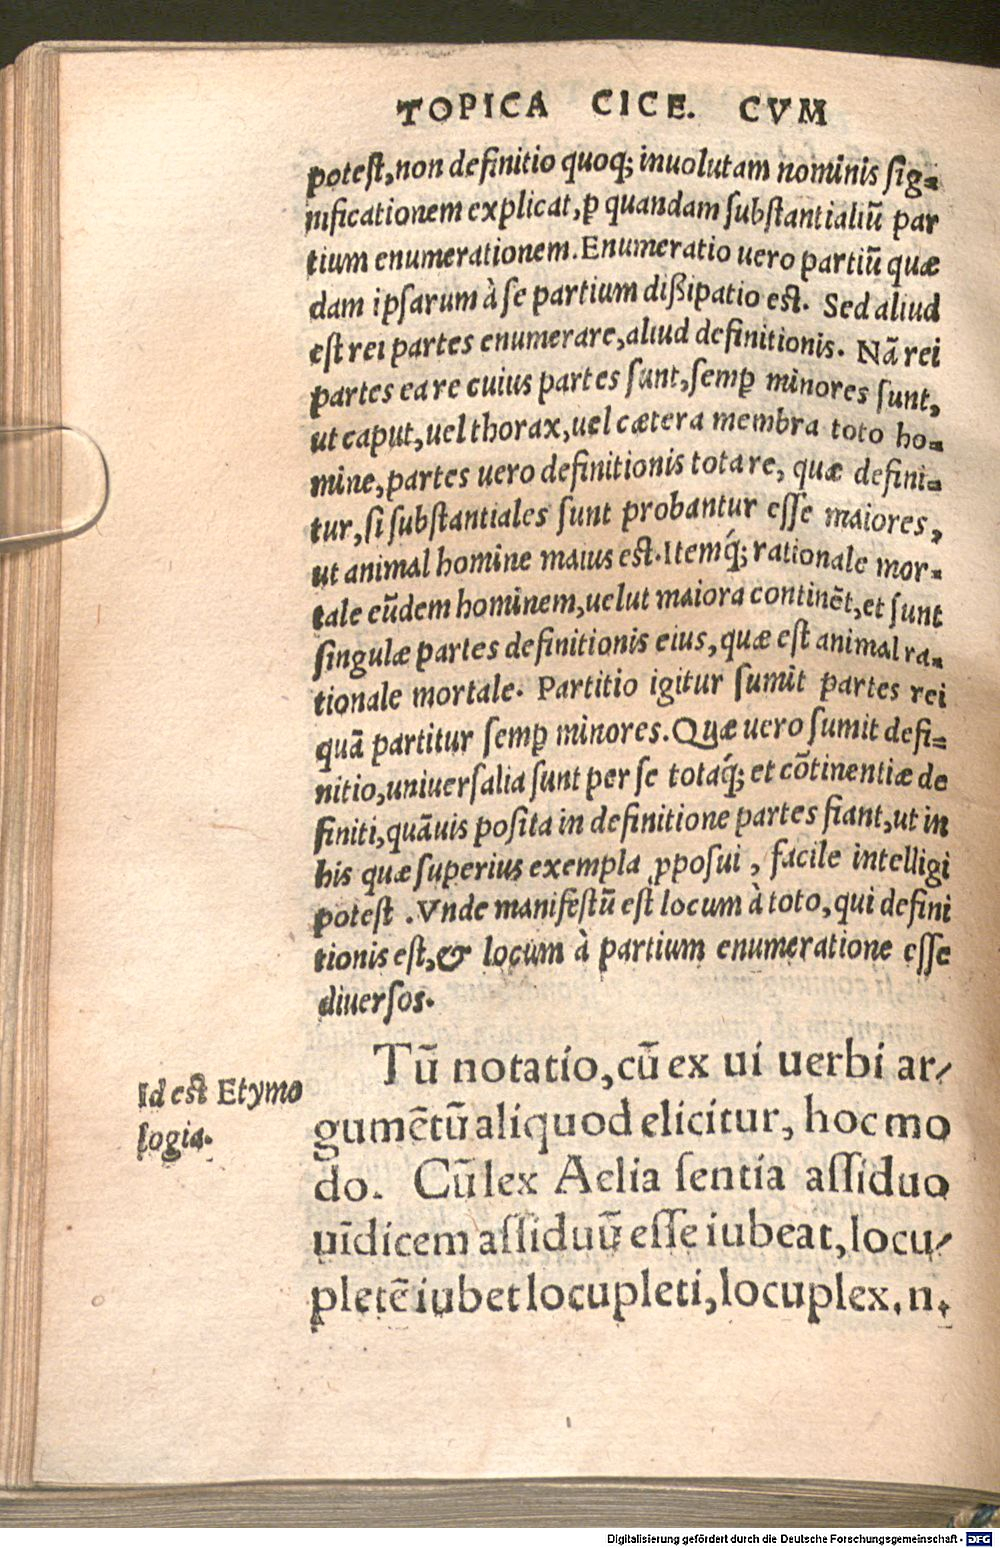 TOPICA CICE. CVM
potest, non definitio quoq; inuolutam nominis sig-
nificationem explicat, ꝑ quandam substantialiũ par
tium enumerationem. Enumeratio uero partiũ quæ
dam ipsarum à se partium dißipatio est. Sed aliud
est rei partes enumerare, aliud definitionis. Nã rei
partes ea re cuius partes sunt, semꝑ minores sunt,
ut caput, uel thorax, uel cætera membra toto ho-
mine, partes uero definitionis tota re, quæ defini-
tur, si substantiales sunt probantur esse maiores,
ut animal homine maius est. Itemq́; rationale mor-
tale eũdem hominem, uelut maiora continẽt, et sunt
singulæ partes definitionis eius, quæ est animal ra-
tionale mortale. Partitio igitur sumit partes rei
quã partitur semꝑ minores. Quæ uero sumit defi-
nitio, uniuersalia sunt per se totaq́; et cõtinentiæ de
finiti, quãuis posita in definitione partes fiant, ut in
his quæ superius exempla ꝓposui, facile intelligi
potest. Vnde manifestũ est locum à toto, qui defini
tionis est, & locum à partium enumeratione esse
diuersos.
Tũ notatio, cũ ex ui uerbi ar-
gumẽtũ aliquod elicitur, hoc mo
do. Cũ lex Aelia sentia assiduo
uĩdicem assiduũ esse iubeat, locu-
pletẽ iubet locupleti, locuplex. n.
Id est Etymo
logia.
Digitalisierung gefördert durch die Deutsche Forschungsgemeinschaft - DFG